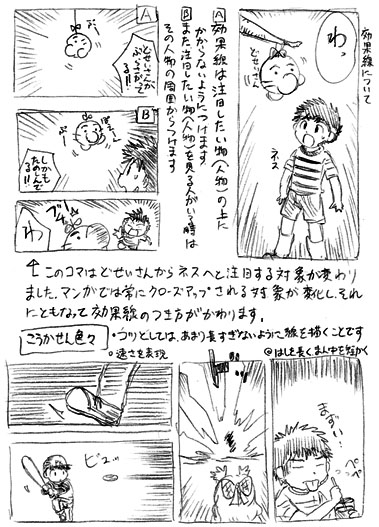 効果線について
わっ
どせいさん
ネス
A 効果線は注目したい物(人物)の上に
かからないようにつけます
B また注目したい物(人物)を見る人がいる時は
その人物の周囲からつけます
A
ぷー
どせいさんが
ぶらさがって
る!!
B
ぽえーん
ぷー
しかもで
たのしん
でる
わ
↑このコマはどせいさんからネスへと注目する対象が変わり
ました。マンガでは常にクローズアップされる対象が変化し、それ
にともなって効果線のつき方がかわります。
こうかせん色々
・コツとしては、あまり長すぎないように線を描くことです
◎速さを表現
◎はしを長く、まん中を短かく
ビュッ
まずい…
ぺぺ